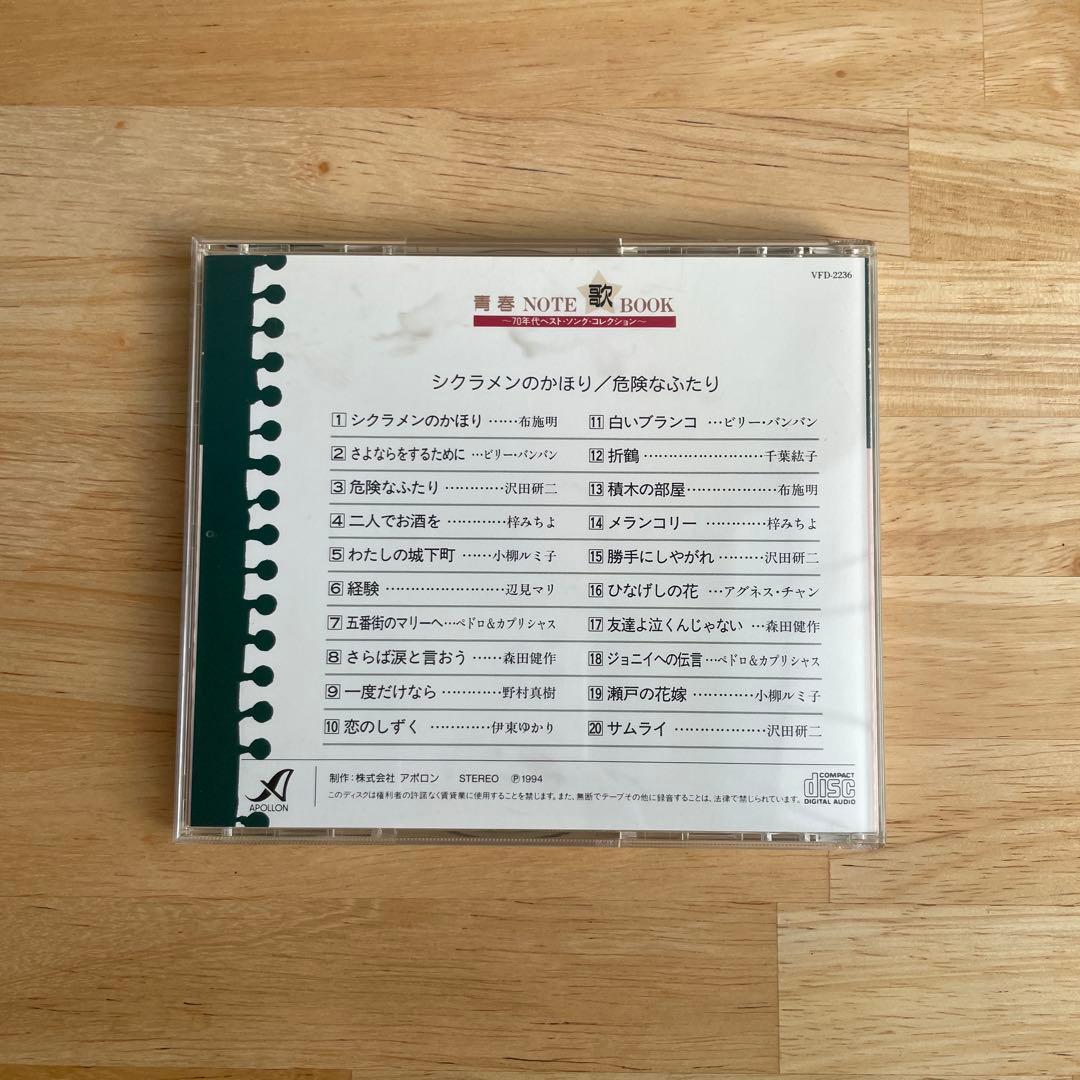 VFD-2236
青春 NOTE 歌 BOOK
〜70年代ベスト・ソング・コレクション〜
シクラメンのかほり／危険なふたり
1 シクラメンのかほり ……布施明
2 さよならをするために …ビリー・バンバン
3 危険なふたり …………沢田研二
4 二人でお酒を …………梓みちよ
5 わたしの城下町 ……小柳ルミ子
6 経験 ……………………辺見マリ
7 五番街のマリーへ…ペドロ&カプリシャス
8 さらば涙と言おう ……森田健作
9 一度だけなら …………野村真樹
10 恋のしずく …………伊東ゆかり
11 白いブランコ …ビリー・バンバン
12 折鶴……………………千葉紘子
13 積木の部屋………………布施明
14 メランコリー …………梓みちよ
15 勝手にしやがれ ………沢田研二
16 ひなげしの花 …アグネス・チャン
17 友達よ泣くんじゃない …森田健作
18 ジョニイへの伝言…ペドロ&カプリシャス
19 瀬戸の花嫁 …………小柳ルミ子
20 サムライ ………………沢田研二
APOLLON
制作：株式会社 アポロン STEREO Ⓟ1994
このディスクは権利者の許諾なく賃貸業に使用することを禁じます。また、無断でテープその他に録音することは、法律で禁じられています。
COMPACT
disc
DIGITAL AUDIO